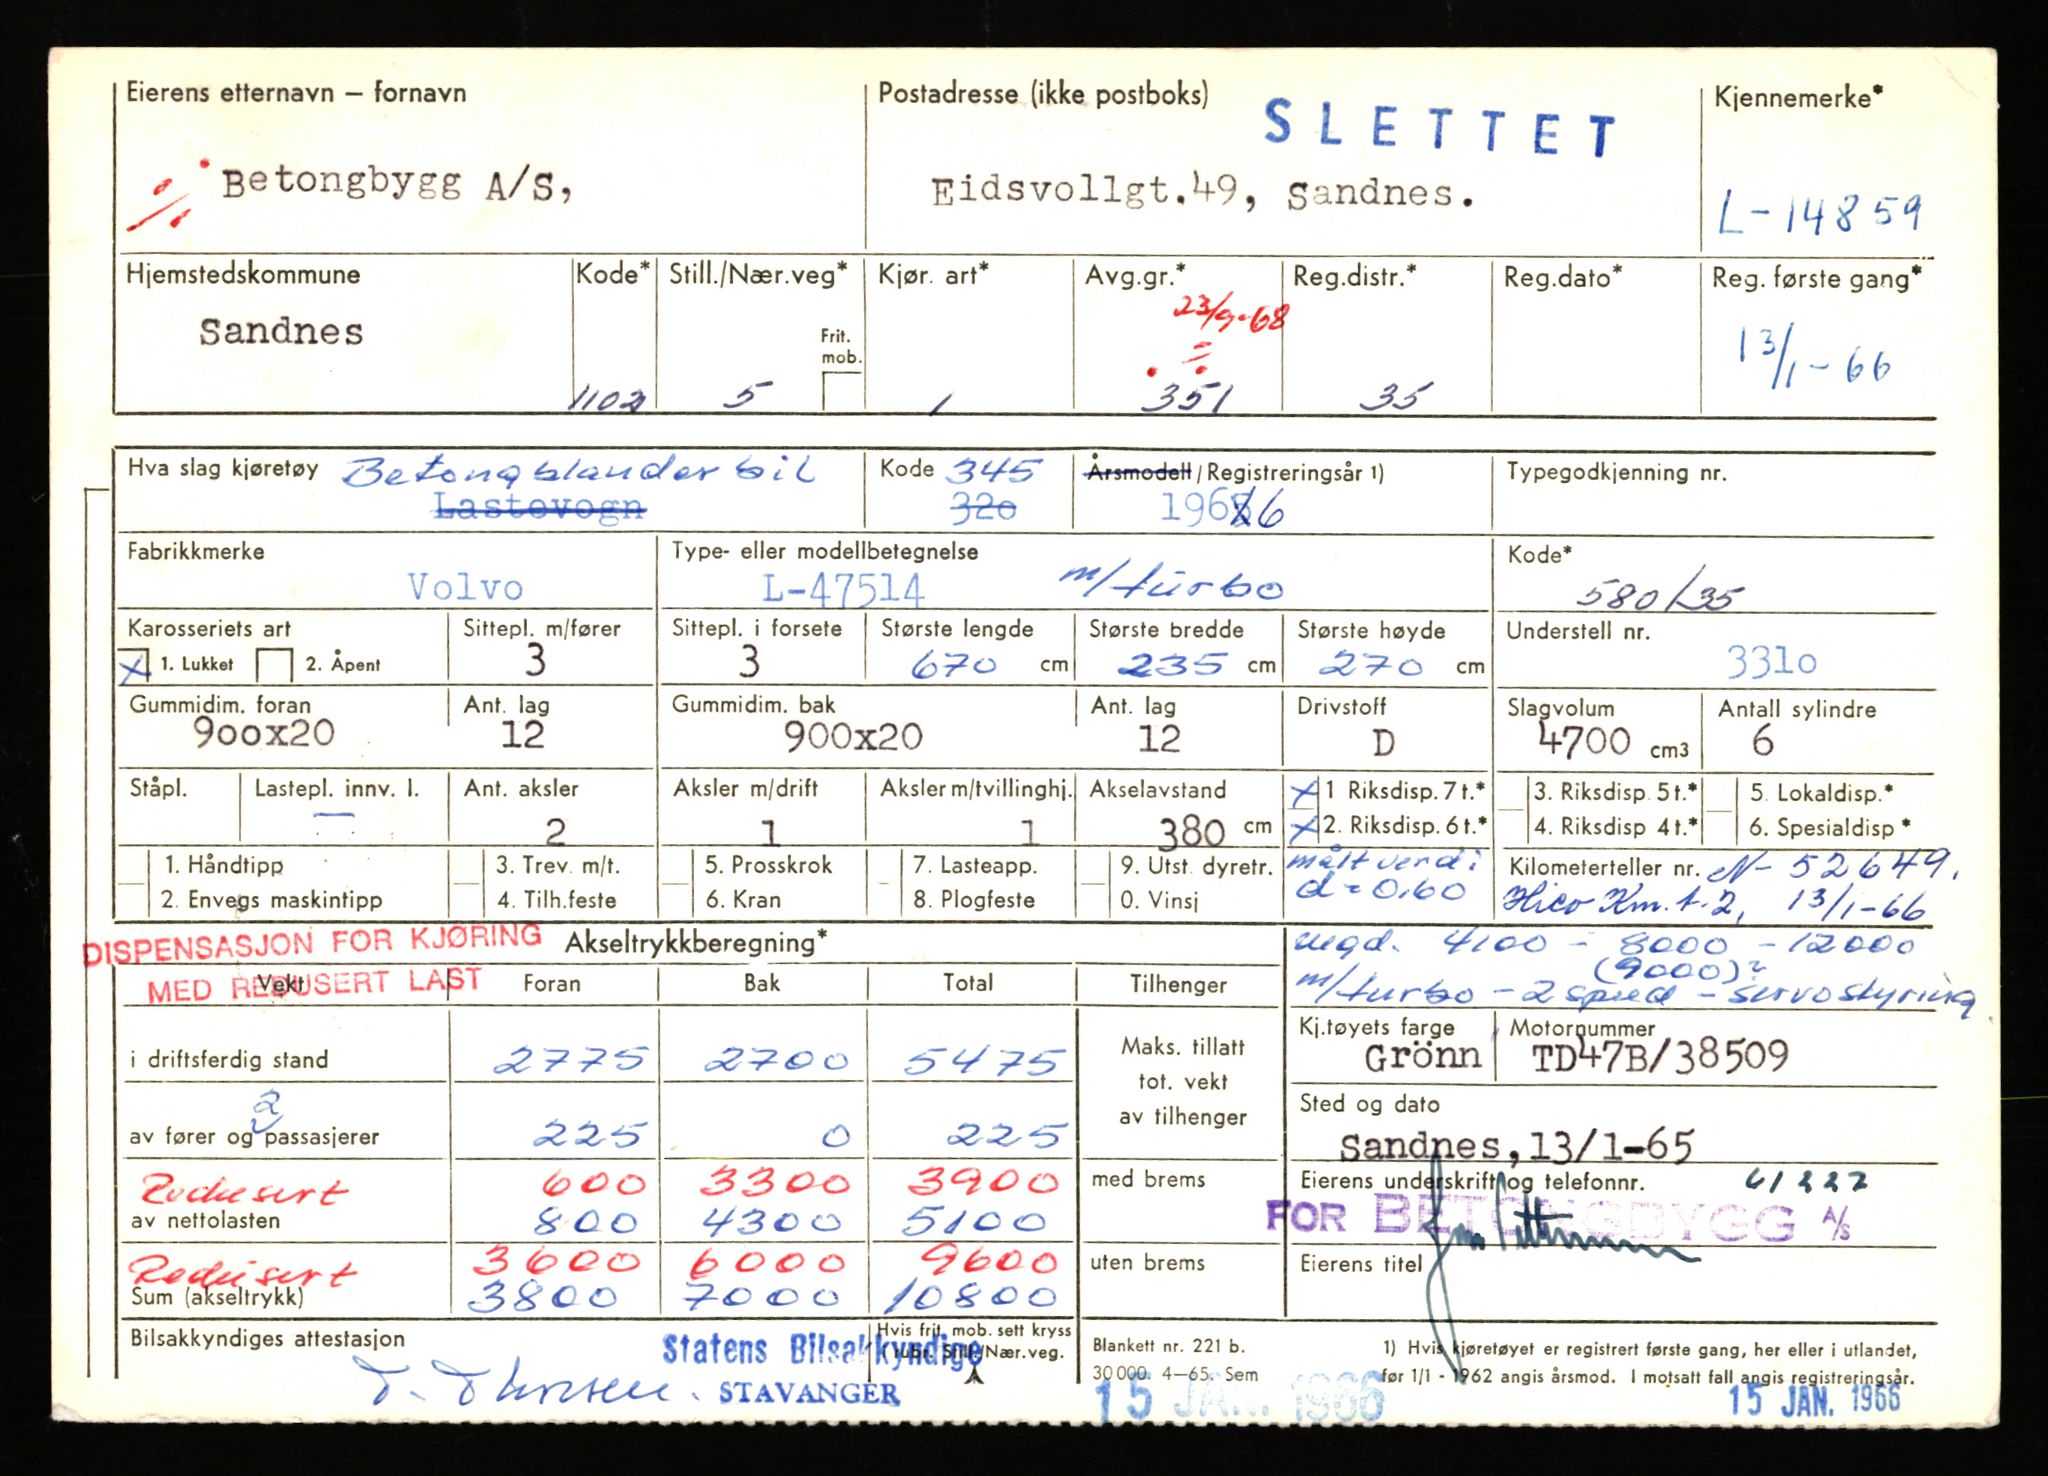 Eierens etternavn – fornavn
Postadresse (ikke postboks)
Kjennemerke*
SLETTET
Betongbygg A/S,
Eidsvollgt.49, Sandnes.
L-14859
Hjemstedskommune
Kode*
Still./Nær.veg*
Kjør. art*
Avg.gr.*
Reg.distr.*
Reg.dato*
Reg. første gang*
Sandnes
Frit. mob.
23/9-68
13/1-66
1102
5
1
351
35
Hva slag kjøretøy Betongblanderbil
Lastevogn
Kode 345
320
Årsmodell / Registreringsår 1)
1965 6
Typegodkjenning nr.
Fabrikkmerke
Volvo
Type- eller modellbetegnelse
L-47514 m/turbo
Kode*
580/35
Karosseriets art
X 1. Lukket
2. Åpent
Sittepl. m/fører
3
Sittepl. i forsete
3
Største lengde
670 cm
Største bredde
235 cm
Største høyde
270 cm
Understell nr.
3310
Gummidim. foran
900x20
Ant. lag
12
Gummidim. bak
900x20
Ant. lag
12
Drivstoff
D
Slagvolum
4700 cm3
Antall sylindre
6
Ståpl.
Lastepl. innv. l.
—
Ant. aksler
2
Aksler m/drift
1
Aksler m/tvillinghj.
1
Akselavstand
380 cm
X 1 Riksdisp. 7 t.*
X 2. Riksdisp. 6 t.*
3. Riksdisp. 5 t.*
4. Riksdisp 4 t.*
5. Lokaldisp.*
6. Spesialdisp*
1. Håndtipp
2. Envegs maskintipp
3. Trev. m/t.
4. Tilh.feste
5. Prosskrok
6. Kran
7. Lasteapp.
8. Plogfeste
9. Utst. dyretr.
0. Vinsj
målt verdi
d=0,60
Kilometerteller nr. N-52649.
Hico Km.t.2, 13/1-66
DISPENSASJON FOR KJØRING
MED REDUSERT LAST
Akseltrykkberegning*
4100 - 8000 - 12000
(9000)
m/turbo - 2 speed - servostyring
Vekt
Foran
Bak
Total
Tilhenger
i driftsferdig stand
2775
2700
5475
Maks. tillatt
tot. vekt
av tilhenger
Kj.tøyets farge
Grönn
Motornummer
TD47B/38509
2
av fører og passasjerer
225
0
225
Sted og dato
Sandnes,13/1-65
Redusert
600
3300
3900
av nettolasten
800
4300
5100
med brems
Eierens underskrift og telefonnr. 61227
FOR BETONGBYGG A/S
Redusert
3600
6000
9600
Sum (akseltrykk)
3800
7000
10800
uten brems
Eierens titel
Bilsakkyndiges attestasjon
Statens Bilsakkyndige
STAVANGER
Hvis frit. mob. sett kryss
i rubr. Still./Nær.veg.
Blankett nr. 221 b.
30 000. 4—65. Sem
1) Hvis kjøretøyet er registrert første gang, her eller i utlandet,
før 1/1 - 1962 angis årsmod. I motsatt fall angis registreringsår.
15 JAN. 1966
15 JAN. 1966